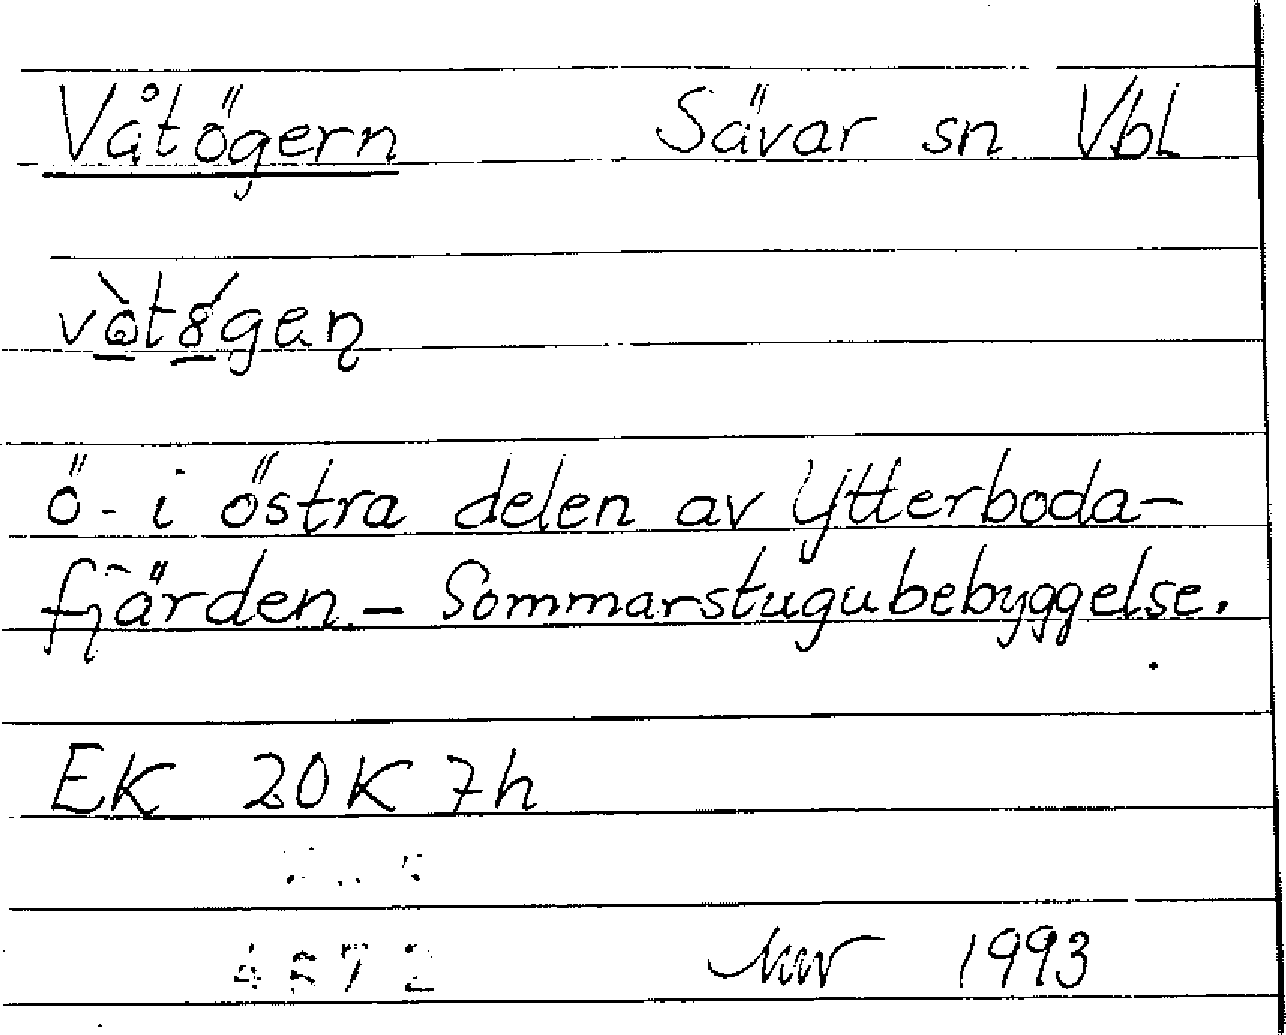 Våtögern Sävar sn Vbl
ö - i östra delen av Ytterboda-
fjärden. - Sommarstugubebyggelse.
EK 20K 7h
1993